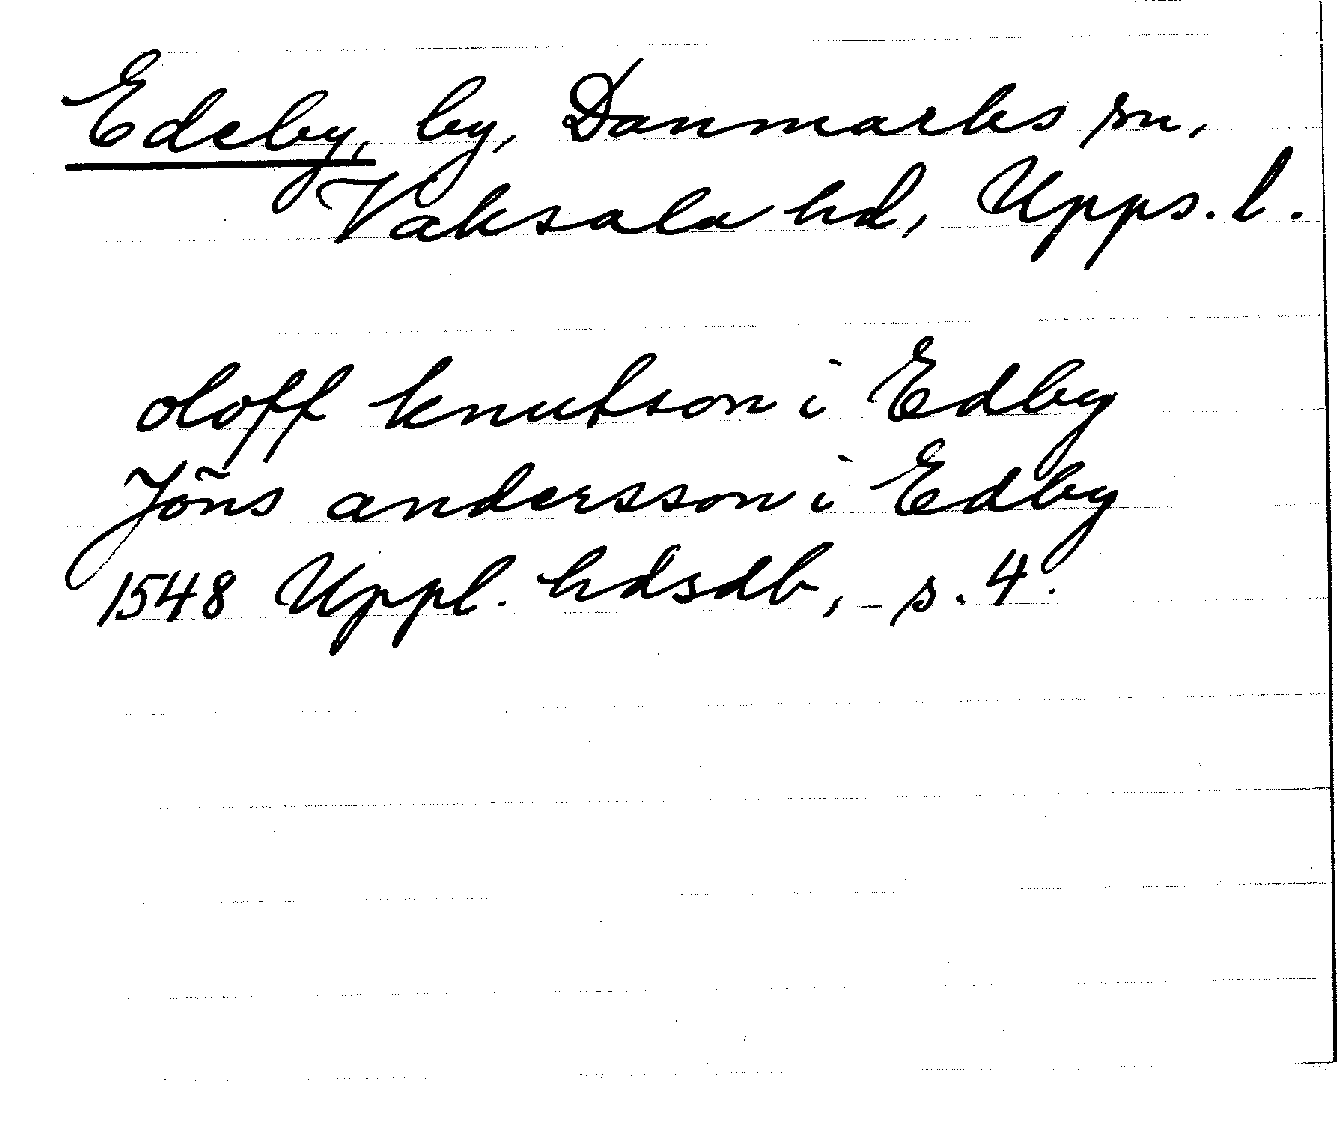 Edeby, by, Danmarks sn,
Vaksala hd, Upps. l.
oloff knutson i Edby
Jöns andersson i Edby
1548 Uppl. hdsdb, s. 4.